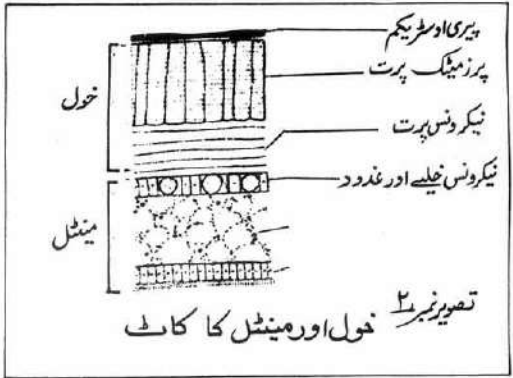 پیری اوسٹریکم
پرزمیٹک پرت
خول
نیکرونس پرت
نیکرونس خلیے اور غدود
مینٹل
تصویر نمبر ۲
خول اور مینٹل کا کاٹ